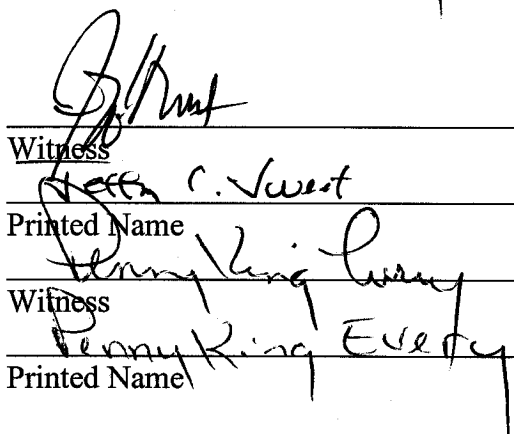 Witness
C. Sweet
Printed Name
Penny King Every
Witness
Penny King Every
Printed Name